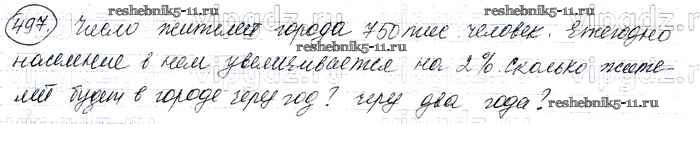 reshebnik5-11.ru
497. Число жителей города 750 тыс. человек. Ежегодно
население в нем увеличивается на 2%. сколько жите-
reshebnik5-11.ru
лей будет в городе через год? через два года?
reshebnik5-11.ru